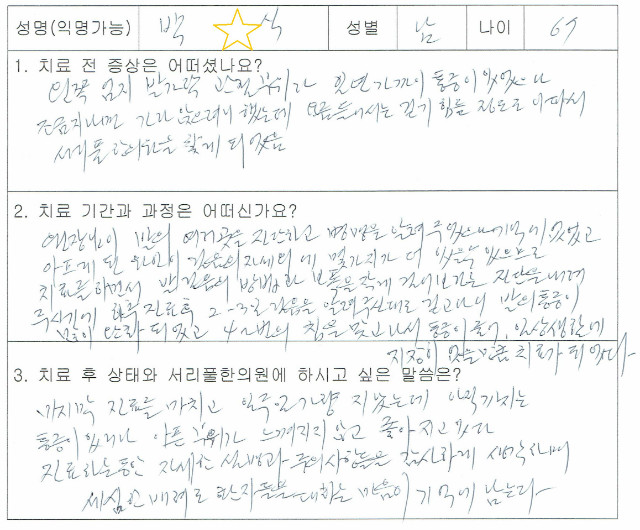 성명(익명가능) 박 식 성별 남 나이 67
1. 치료 전 증상은 어떠셨나요?
왼쪽 엄지 발가락 관절 부위가 일년 가까이 통증이 있었으나
조금 지나면 가라 앉으려니 했는데 요즘 들어서는 걷기 힘들 정도로 아파서
서리풀한의원을 찾게 되었음
2. 치료 기간과 과정은 어떠신가요?
원장님이 발의 여러곳을 진단하고 병명을 알려 주었으나 기억에 없었고
아프게 된 원인이 걸음의 자세 외에 몇가지가 더 있을 수 있으므로
치료를 하면서 걸음의 방법과 보폭을 작게 걸어보라는 진단을 내려
주시기에 하루 진료후 2-3일 걸음을 알려주신대로 걷고나니 발의 통증이
많이 완화 되었고 4~5번의 침을 맞고 나서 통증이 줄어, 일상생활에
지장이 없을 만큼 치료가 되었다.
3. 치료 후 상태와 서리풀한의원에 하시고 싶은 말씀은?
마지막 진료를 마치고 일주일가량 지났는데 아직까지는
통증이 없거나 아픈 부위가 느껴지지 않고 좋아지고 있다
진료하는 동안 자세한 설명과 주의사항들은 감사하게 생각하며
세심한 배려로 환자들을 대하는 마음이 기억에 남는다